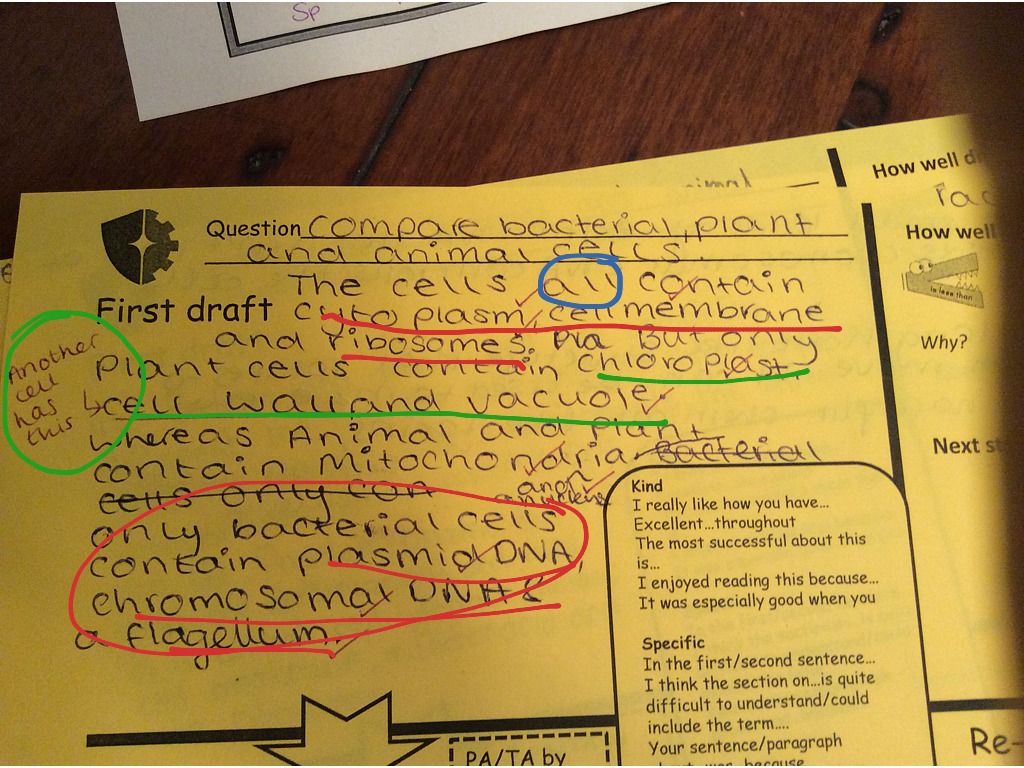 Sp
Question Compare bacterial, plant
and animal cells.
First draft
The cells all contain
cytoplasm, cell membrane
and ribosomes. But only
Plant cells contain chloroplast,
cell wall and vacuole.
whereas Animal and plant
contain mitochondria. bacterial
cells only con
only bacterial cells
contain plasmid DNA,
chromosomal DNA &
a flagellum.
Another
cell
has
this
animal
How well
How well
is less than
Why?
Next
Kind
I really like how you have...
Excellent...throughout
The most successful about this
is...
I enjoyed reading this because...
It was especially good when you
Specific
In the first/second sentence...
I think the section on...is quite
difficult to understand/could
include the term....
Your sentence/paragraph
PA/TA by
Re-